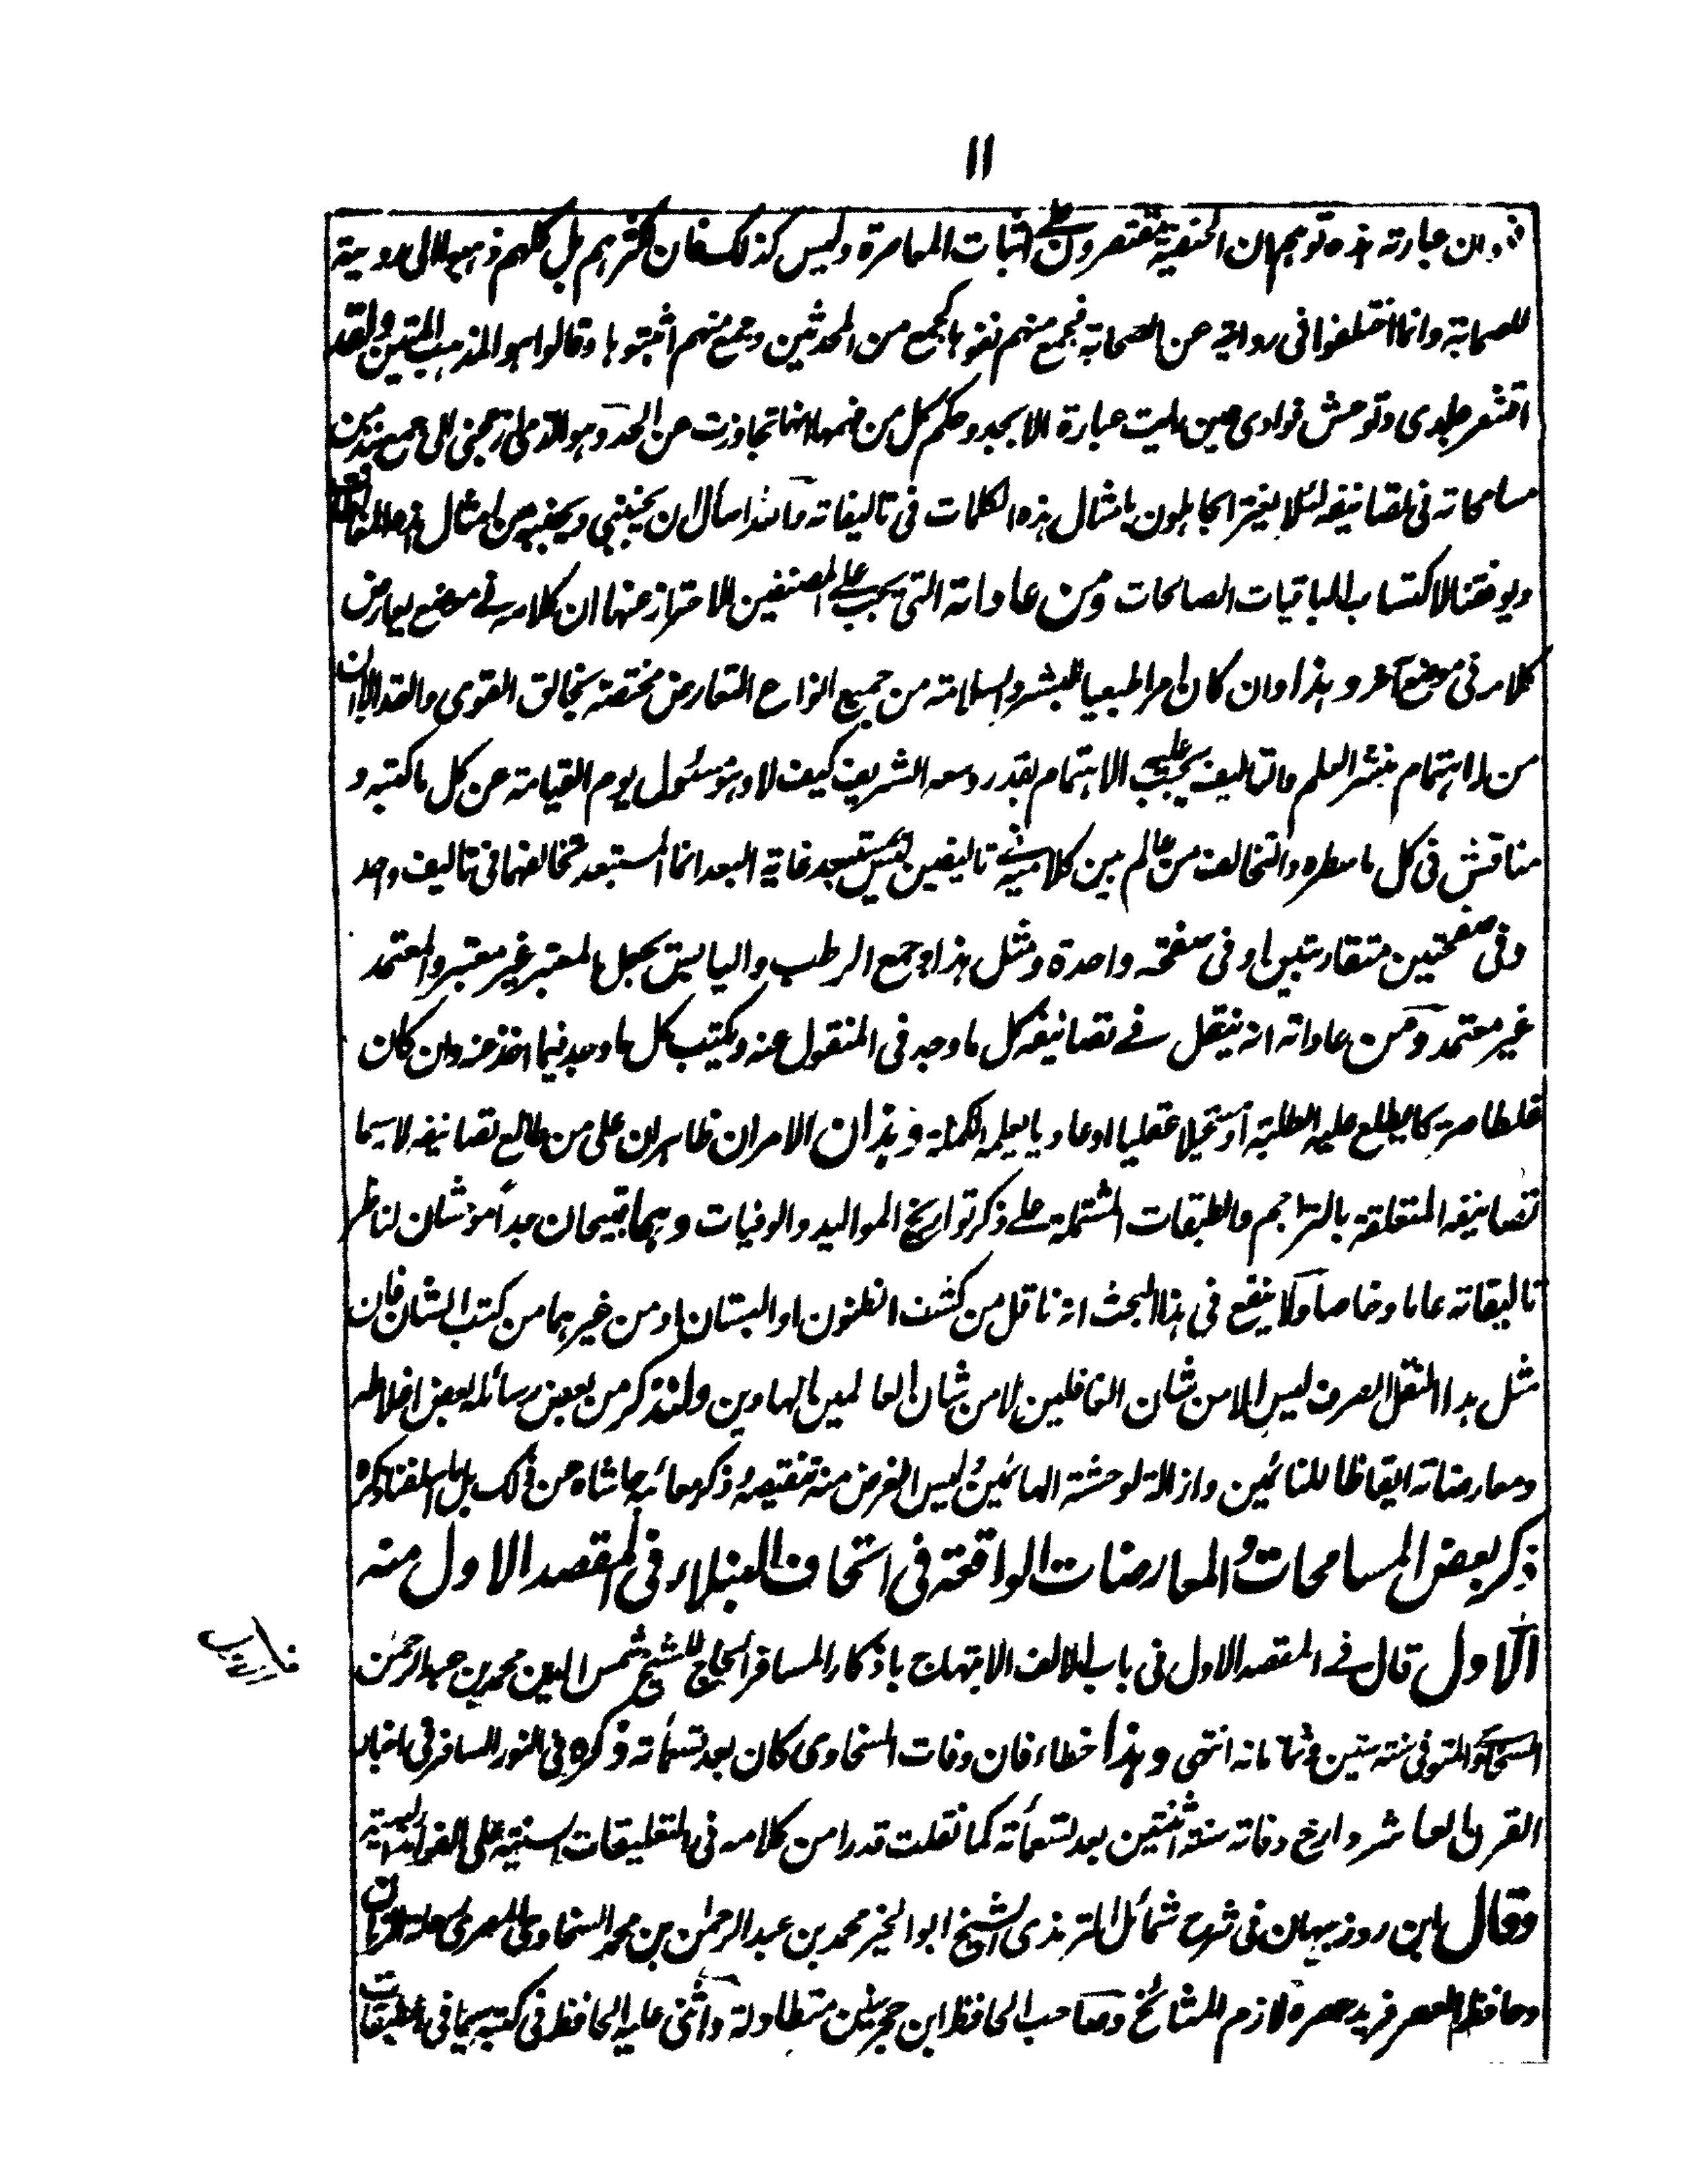 ۱۱
وان عبارته هذه توهم ان الحنفية مقتصرون على اثبات المعاصرة وليس كذلك فان اكثرهم بل كلهم ذهبوا الى رويته
للصحابة وانما اختلفوا فى روايته عن الصحابة فجمع منهم نفوها كجمع من المحدثين وجمع منهم اثبتوها وقالوا هو المذهب المتين ولقد
اقشعر جلدى وتوحش فوادى حين رايت عبارة الابجد وحكم كل من فهمها انها تجاوزت عن الحد وهو الذى الجئنى الى جمع نبذ من
مسامحاته فى تصانيفه لئلا يغتر الجاهلون بامثال هذه الكلمات فى تاليفاته والله اسأل ان يجنبنى ويجنبه عن امثال هذه
ويوفقنا لاكتساب الباقيات الصالحات ومن عاداته التى يجب على المصنفين الاحتراز عنها ان كلامه فى موضع يعارض
كلامه فى موضع آخر وهذا وان كان امرا طبعيا للبشر والسلامة من جميع انواع التعارض مختصة بخالق القوى والقدر الا ان
من له اهتمام بنشر العلم والتاليف يجب عليه الاهتمام بقدر وسعه الشريف كيف لا وهو مسئول يوم القيامة عن كل ما كتبه و
مناقش فى كل ما سطره والتخالف من عالم بين كلاميه فى تاليفين ليس بمستبعد غاية البعد انما المستبعد تخالفهما فى تاليف واحد
وفى صفحتين متقاربتين او فى صفحة واحدة ومثل هذا وجمع الرطب واليابس يجعل المعتبر غير معتبر والمعتمد
غير معتمد ومن عاداته انه ينقل فى تصانيفه كل ما وجد فى المنقول عنه ويكتب كل ما وجد فيما اخذ عنه وان كان
غلطا صريحا يطلع عليه الطلبة او مستحيلا عقليا او عاديا يعلمه الكملة وهذان الامران ظاهران على من طالع تصانيفه لا سيما
تصانيفه المتعلقة بالتراجم والطبقات المشتملة على ذكر تواريخ المواليد والوفيات وهما قبيحان جداً موحشان لناظر
تاليفاته عاما وخاصا ولا ينفع فى هذا البحث انه ناقل من كشف الظنون او البستان او من غيرهما من كتب الشان فان
مثل هذا النقل الصرف ليس الا من شان الغافلين لا من شان العالمين الهادين ولنذكر من بعض رسائله بعض اغلاطه
ومعارضاته ايقاظا للنائمين وازالة لوحشة الهائمين وليس الغرض منه تنقيصه وذكر معائبه حاشاه عن ذلك بل ما اسلفنا ذكره
ذكر بعض المسامحات والمعارضات الواقعة فى اتحاف النبلاء فى المقصد الاول منه
الاول قال فى المقصد الاول فى باب الالف الابتهاج باذكار المسافر الحاج للشيخ شمس الدين محمد بن عبد الرحمن
السخاوى المتوفى سنة ستين وثمانمائة انتهى وهذا خطاء فان وفات السخاوى كان بعد تسعمائة ذكره فى النور السافر فى اخبار
القرن العاشر وارخ وفاته سنة اثنتين بعد تسعمأته كما نقلت قدرا من كلامه فى التعليقات السنية على الفوائد البهية
وقال ابن روزبهان فى شرح شمائل الترمذى الشيخ ابو الخير محمد بن عبد الرحمن بن محمد السخاوى المصرى
وحافظ العصر فريد عصره لازم للمشائخ وصاحب الحافظ ابن حجر سنين متطاولة واثنى عليه الحافظ فى كتبه سيما فى الطبقات